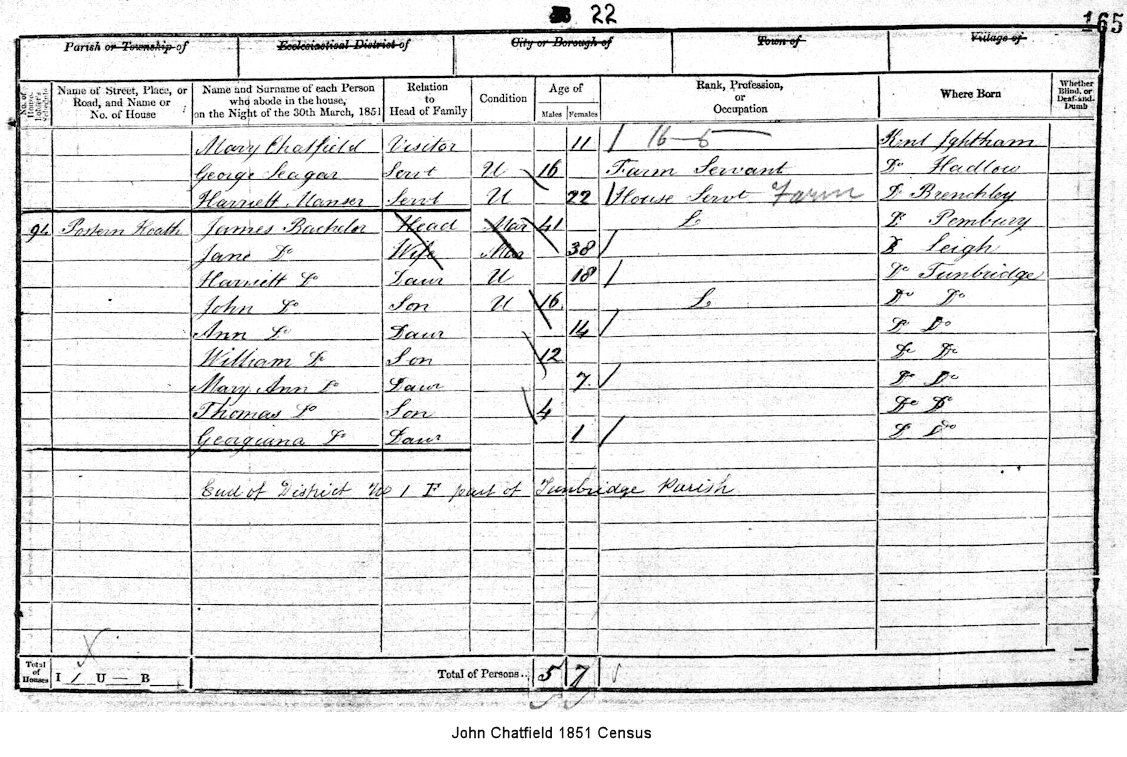 22
165
Parish or Township of Ecclesiastical District of City or Borough of Town of Village of
No. of House-holder's Schedule Name of Street, Place, or Road, and Name or No. of House Name and Surname of each Person who abode in the house, on the Night of the 30th March, 1851 Relation to Head of Family Condition Age of Males Females Rank, Profession, or Occupation Where Born Whether Blind, or Deaf-and-Dumb
Mary Chatfield Visitor 11 16-6 Kent Ightham
George Seagar Servt U 16 Farm Servant Do Hadlow
Harriett Manser Servt U 22 House Servt Farm Do Brenchley
94 Postern Heath James Bachelor Head Mar 41 L Do Pembury
Jane Do Wife Mar 38 Do Leigh
Harriett Do Daur U 18 Do Tunbridge
John Do Son U 16 L Do Do
Ann Do Daur 14 Do Do
William Do Son 12 Do Do
Mary Ann Do Daur 7 Do Do
Thomas Do Son 4 Do Do
Georgiana Do Daur 1 Do Do
End of District No 1 F part of Tunbridge Parish
Total of Houses I 1 U — B Total of Persons 5 7
John Chatfield 1851 Census